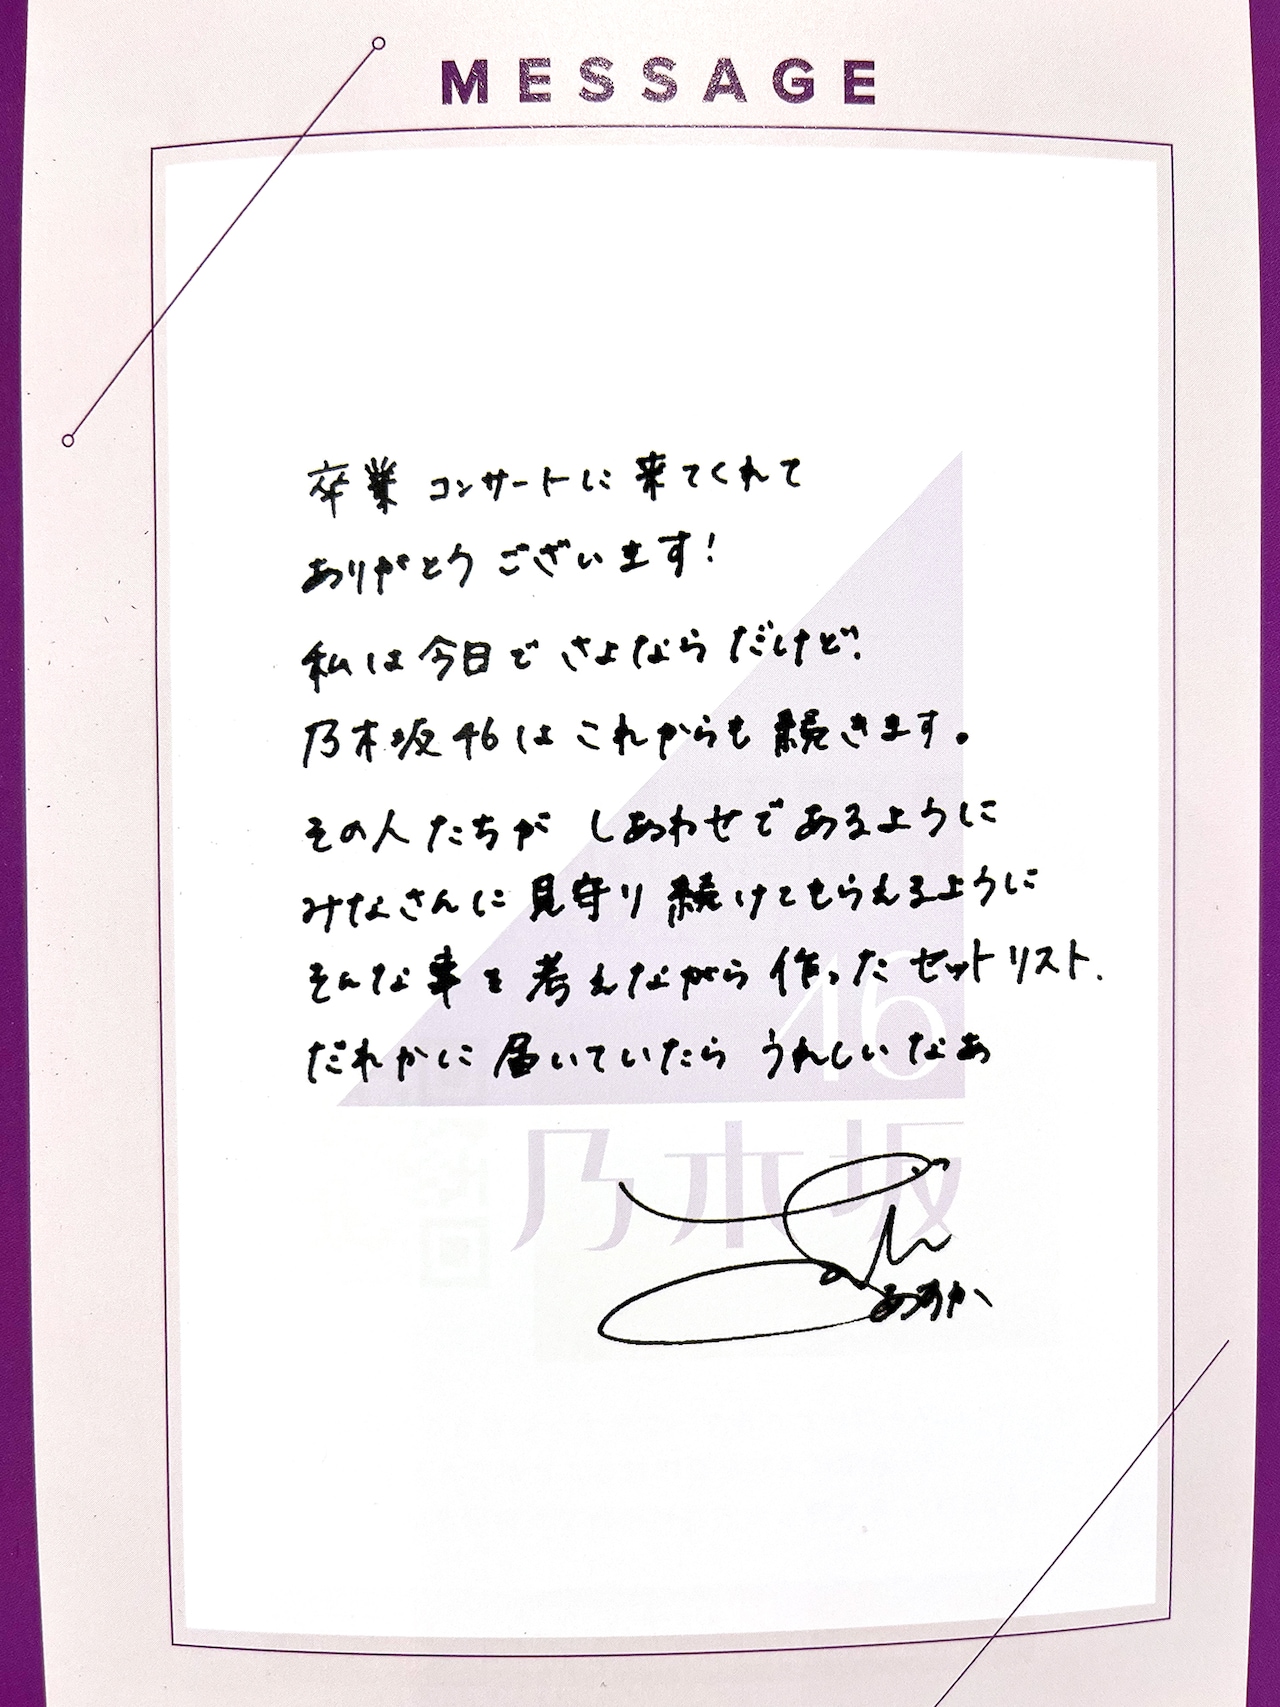 MESSAGE
卒業コンサートに来てくれて
ありがとうございます!
私は今日でさよならだけど、
乃木坂46はこれからも続きます。
その人たちが しあわせであるように
みなさんに見守り続けてもらえるように
そんな事を考えながら作ったセットリスト、
だれかに届いていたら うれしいなあ
46
乃木坂
あすか